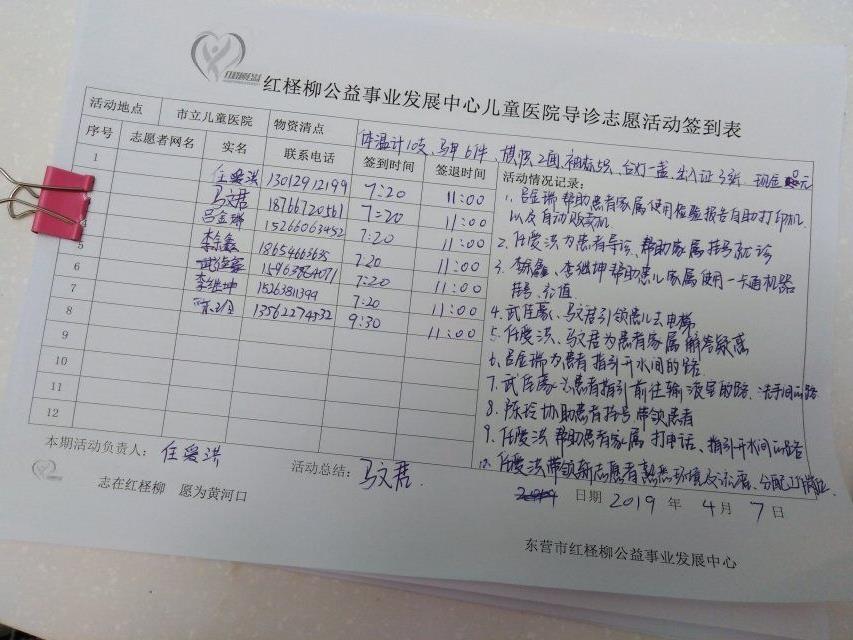 红柽柳公益事业发展中心儿童医院导诊志愿活动签到表
活动地点 市立儿童医院 物资清点 体温计10支、马甲6件、横照2面、袖标5只、台灯一盏、出入证3张、现金 元
序号 志愿者网名 实名 联系电话 签到时间 签退时间 活动情况记录:
1 任爱洪 13012912199 7:20 11:00
马文君 18766720561 7:20 11:00
吕金瑞 15266063452 7:20 11:00
5 李鑫鑫 18654663635 7:20 11:00
6 武臣豪 7:20 11:00
7 李继坤 15263811399 7:20 11:00
8 13562274532 9:30 11:00
9
10
11
12
1. 吕金瑞帮助患者家属使用检验报告自助打印机
以及自动贩卖机
2. 任爱洪为患者导诊、帮助家属挂号就诊
3. 李鑫鑫、李继坤帮助患儿家属使用一卡通机器
挂号、充值
4. 武臣豪、马文君引领患儿去电梯
5. 任爱洪、马文君为患者家属解答疑惑
6. 吕金瑞为患者指引开水间的路
7. 武臣豪为患者指引前往输液室的路、洗手间的路
8. 陈玲协助患者挂号带领患者
9. 任爱洪帮助患者家属打电话、指引开水间的路
10. 任爱洪带领新志愿者熟悉环境及 、分配工作岗位.
本期活动负责人: 任爱洪
活动总结: 马文君.
志在红柽柳 愿为黄河口
日期 2019 年 4 月 7 日
东营市红柽柳公益事业发展中心